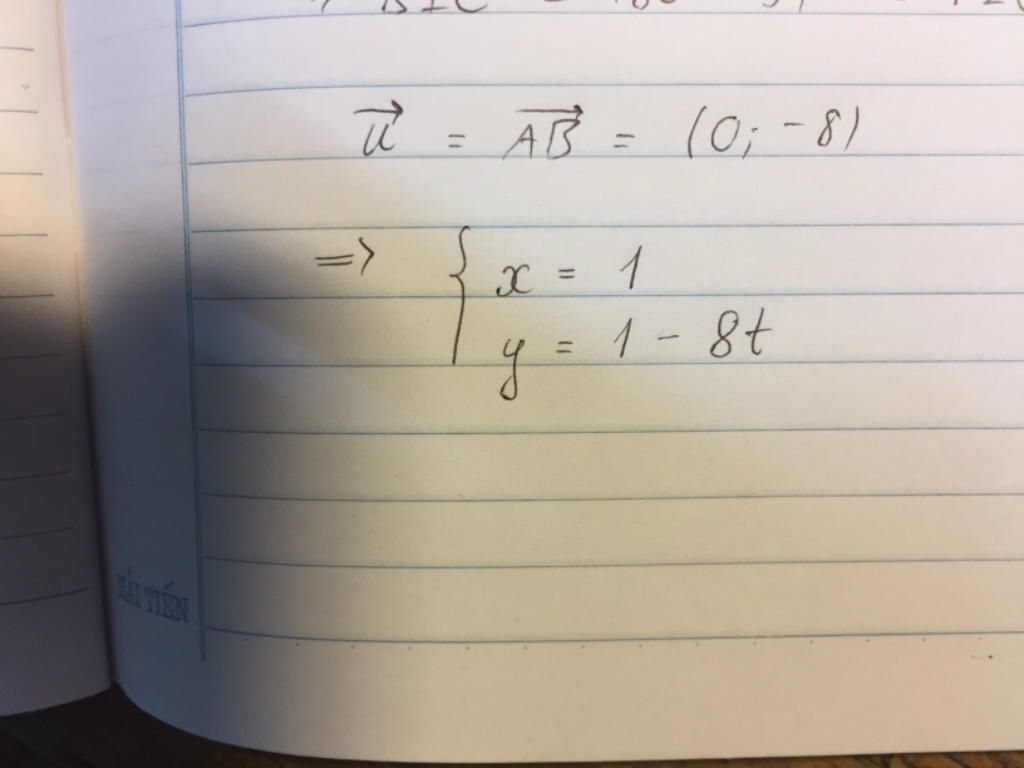 u⃗ = A⃗B⃗ = (0; -8)
=> { x = 1
y = 1 - 8t
HẢI TIẾN